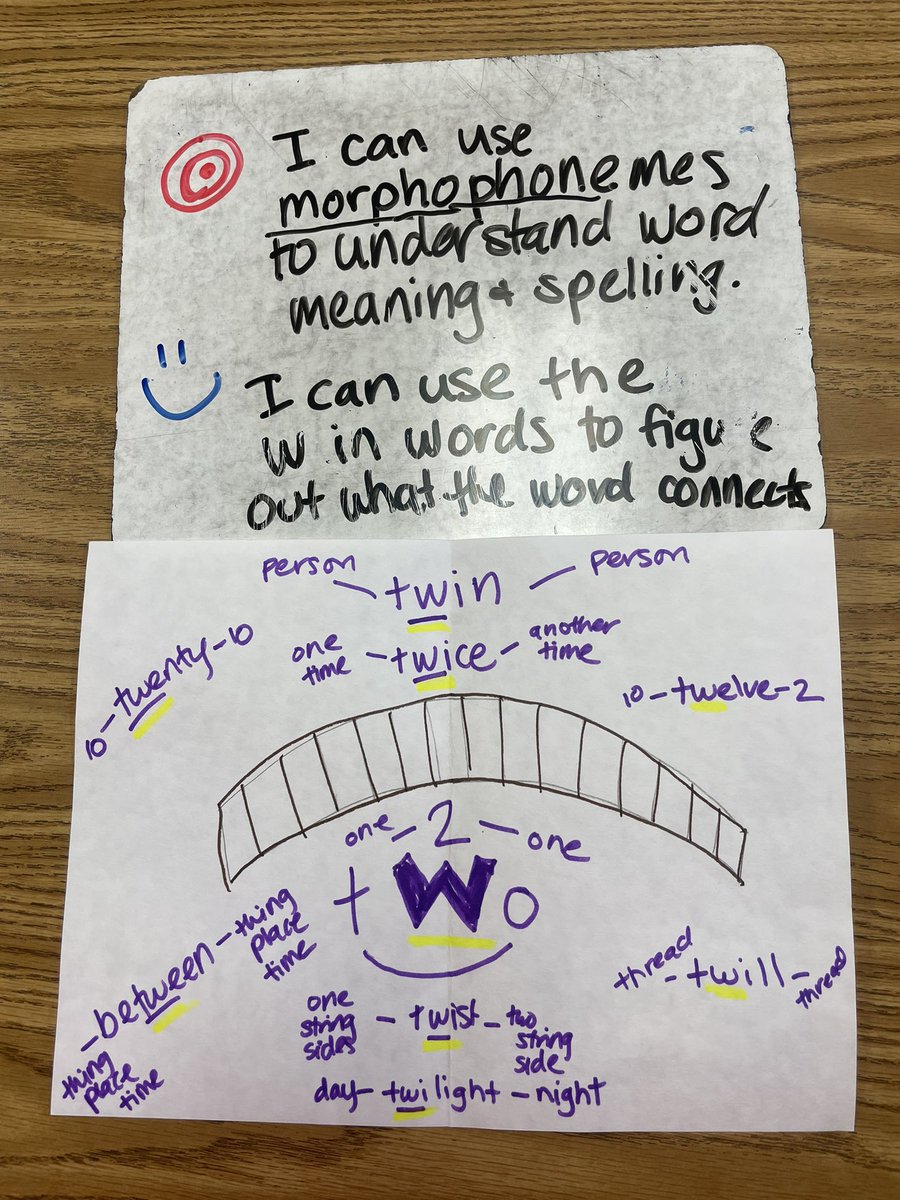 I can use
morphophonemes
to understand word
meaning & spelling.
I can use the
w in words to figu e
out what the word connects
person - twin - person
one time - twice - another time
10 - twenty - 10
10 - twelve - 2
one - 2 - one
two
thing place time - between - thing place time
thread - twill - thread
one string sides - twist - two string side
day - twilight - night